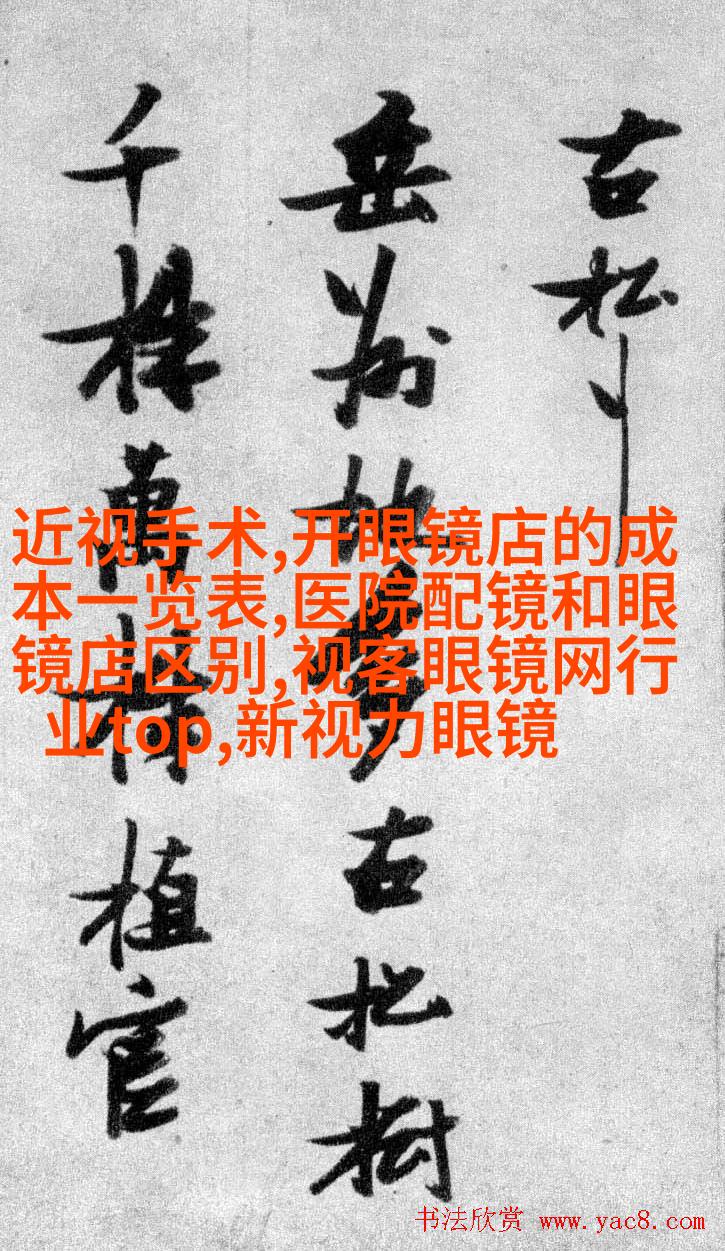 古松
岳州地多古松樹
千株萬株植官
近视手术,开眼镜店的成
本一览表,医院配镜和眼
镜店区别,视客眼镜网行
业top,新视力眼镜
书法欣赏 www.yac8.com